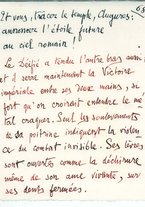 63
Et vous, tracez le temple, Augures:
annoncez l'étoile future
au ciel romain!
Le Défié a tendu l'autre bras aussi;
et il serre maintenant la Victoire
impériale entre ses deux mains, si
fort qu'on croirait entendre le mé-
tal craquer. Seuls les soulèvements
de sa poitrine indiquent la violen-
ce du combat invisible. Ses lèvres
sont ouvertes comme la déchirure
même de son âme vivante, sur
ses dents fermées.